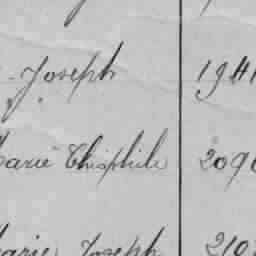 Joseph 1941
Marie Théophile 209
Marie Joseph 210